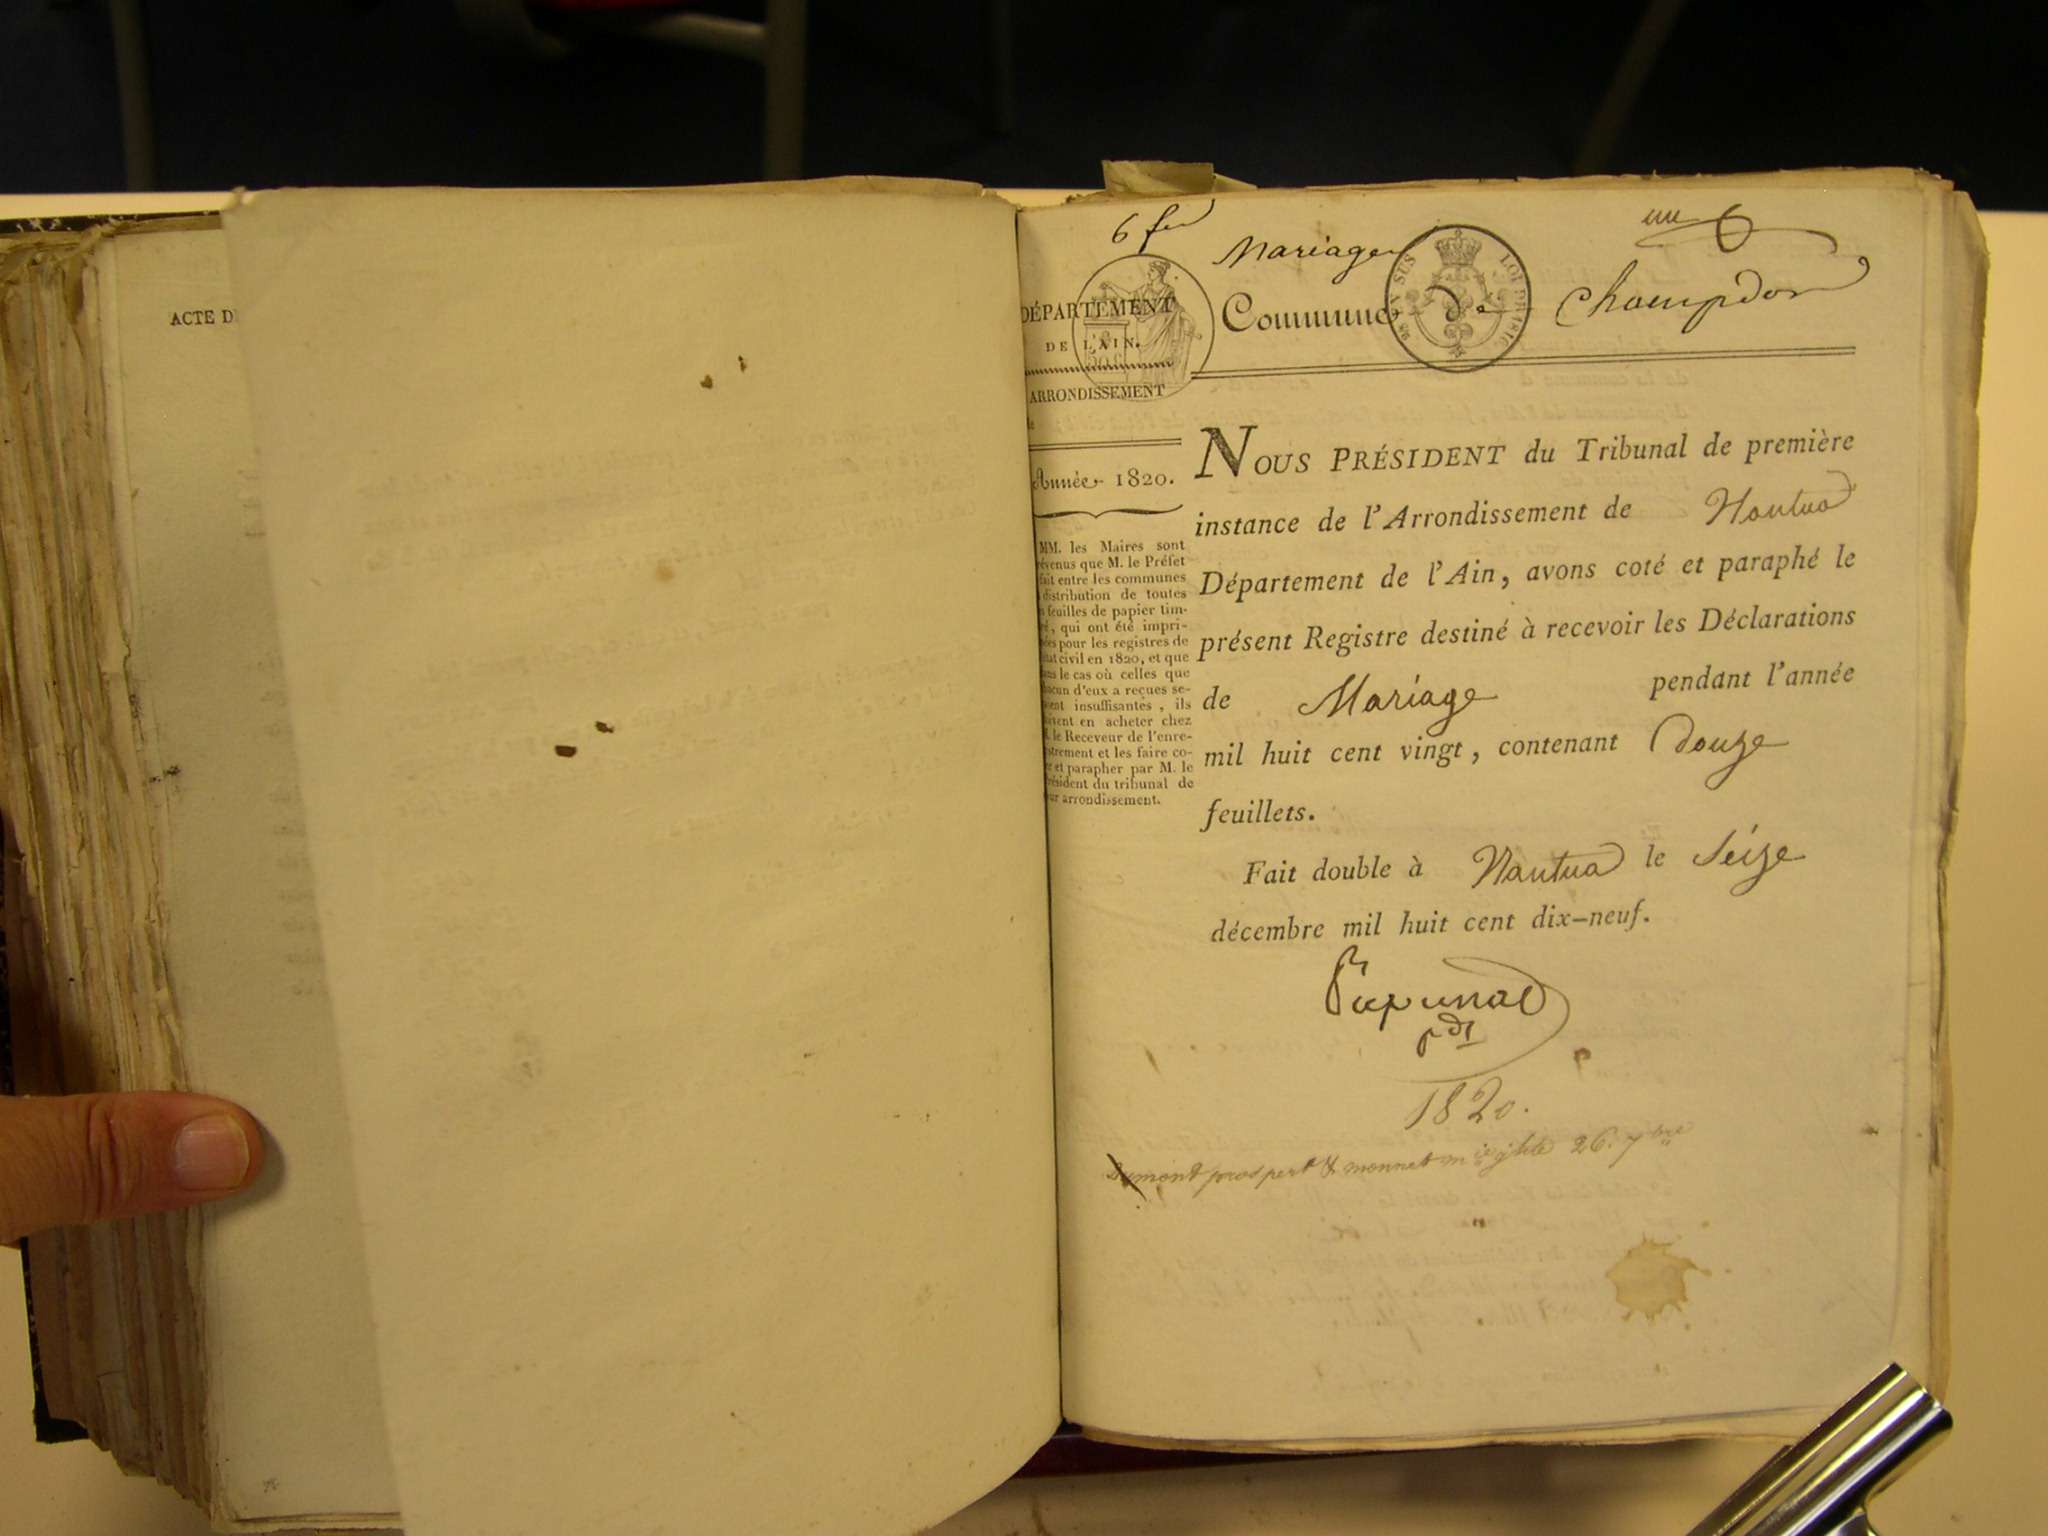 ACTE D
6 fer
Mariage
un
DÉPARTEMENT
DE L'AIN.
Commune de Champdor
EN SUS
LOI DE 1816
ARRONDISSEMENT
Année 1820.
MM. les Maires sont
évenus que M. le Préfet
fait entre les communes
distribution de toutes
feuilles de papier tim-
é, qui ont été impri-
ées pour les registres de
état civil en 1820, et que
ans le cas où celles que
hacun d'eux a reçues se-
ient insuffisantes, ils
ivent en acheter chez
le Receveur de l'enre-
istrement et les faire co-
er et parapher par M. le
résident du tribunal de
ur arrondissement.
NOUS PRÉSIDENT du Tribunal de première
instance de l'Arrondissement de Nantua
Département de l'Ain, avons coté et paraphé le
présent Registre destiné à recevoir les Déclarations
de Mariage pendant l'année
mil huit cent vingt, contenant Douze
feuillets.
Fait double à Nantua le Seize
décembre mil huit cent dix-neuf.
pdt
1820.
Dumont prospert & monnet mie 26. 7bre